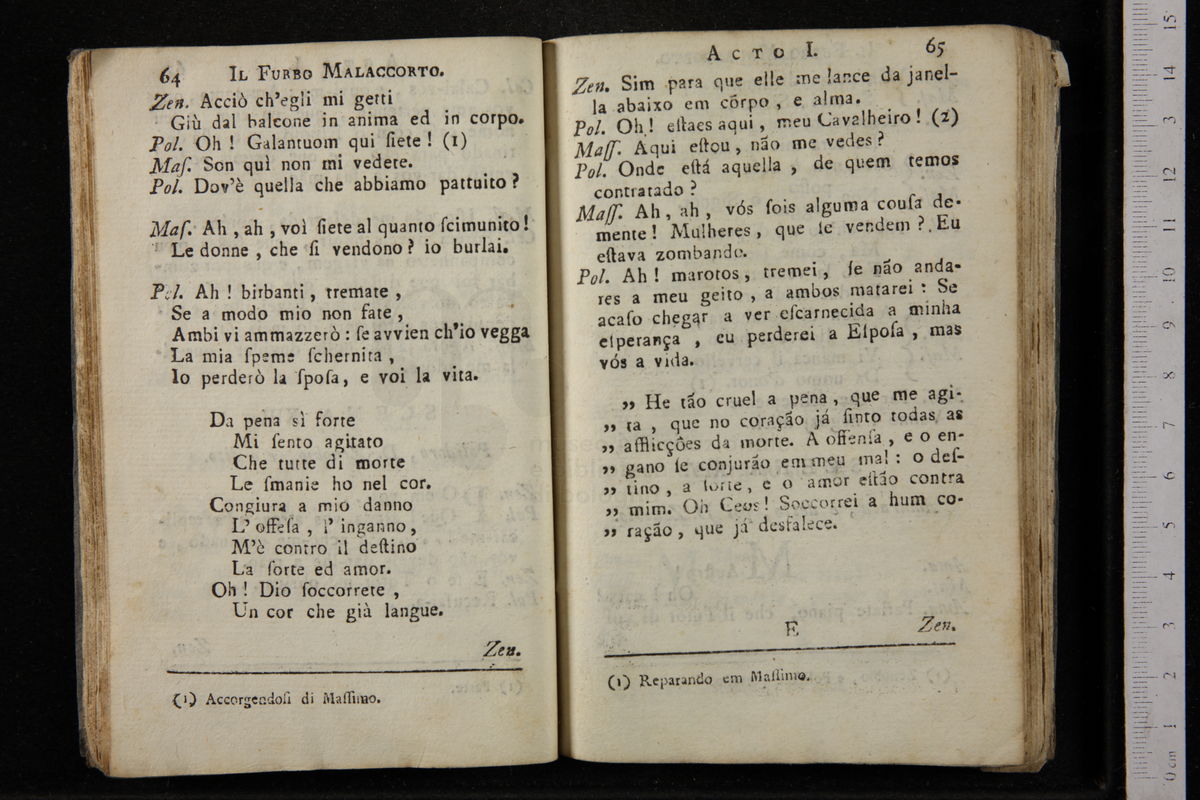 64 Il Furbo Malaccorto.
Zen. Acciò ch'egli mi getti
Giù dal balcone in anima ed in corpo.
Pol. Oh ! Galantuom qui ſiete ! (1)
Maſ. Son quì non mi vedere.
Pol. Dov'è quella che abbiamo pattuito ?
Maſ. Ah , ah , voì ſiete al quanto ſcimunito !
Le donne , che ſi vendono ? io burlai.
Pol. Ah ! birbanti , tremate ,
Se a modo mio non fate ,
Ambi vi ammazzerò : ſe avvien ch'io vegga
La mia ſpeme ſchernita ,
Io perderò la ſpoſa , e voi la vita.
Da pena sì forte
Mi ſento agitato
Che tutte di morte
Le ſmanie ho nel cor.
Congiura a mio danno
L' offeſa , l' inganno ,
M'è contro il deſtino
La ſorte ed amor.
Oh ! Dio ſoccorrete ,
Un cor che già langue.
Zen.
(1) Accorgendoſi di Maſſimo.
Acto I. 65
Zen. Sim para que elle me lance da janel-
la abaixo em côrpo , e alma.
Pol. Oh ! eſtaes aqui , meu Cavalheiro ! (2)
Maſſ. Aqui eſtou , não me vedes ?
Pol. Onde eſtá aquella , de quem temos
contratado ?
Maſſ. Ah , ah , vós ſois alguma couſa de-
mente ! Mulheres , que ſe vendem ? Eu
eſtava zombando.
Pol. Ah ! marotos , tremei , ſe não anda-
res a meu geito , a ambos matarei : Se
acaſo chegar a ver eſcarnecida a minha
eſperança , eu perderei a Eſpoſa , mas
vós a vida.
„ He tão cruel a pena , que me agi-
„ ta , que no coração já ſinto todas as
„ afflicções da morte. A offenſa , e o en-
„ gano ſe conjurão em meu mal : o deſ-
„ tino , a ſorte , e o amor eſtão contra
„ mim. Oh Ceos ! Soccorrei a hum co-
„ ração , que já desfalece.
E Zen.
(1) Reparando em Maſſimo.
15
14
13
12
11
10
9
8
7
6
5
4
3
2
1
0 cm